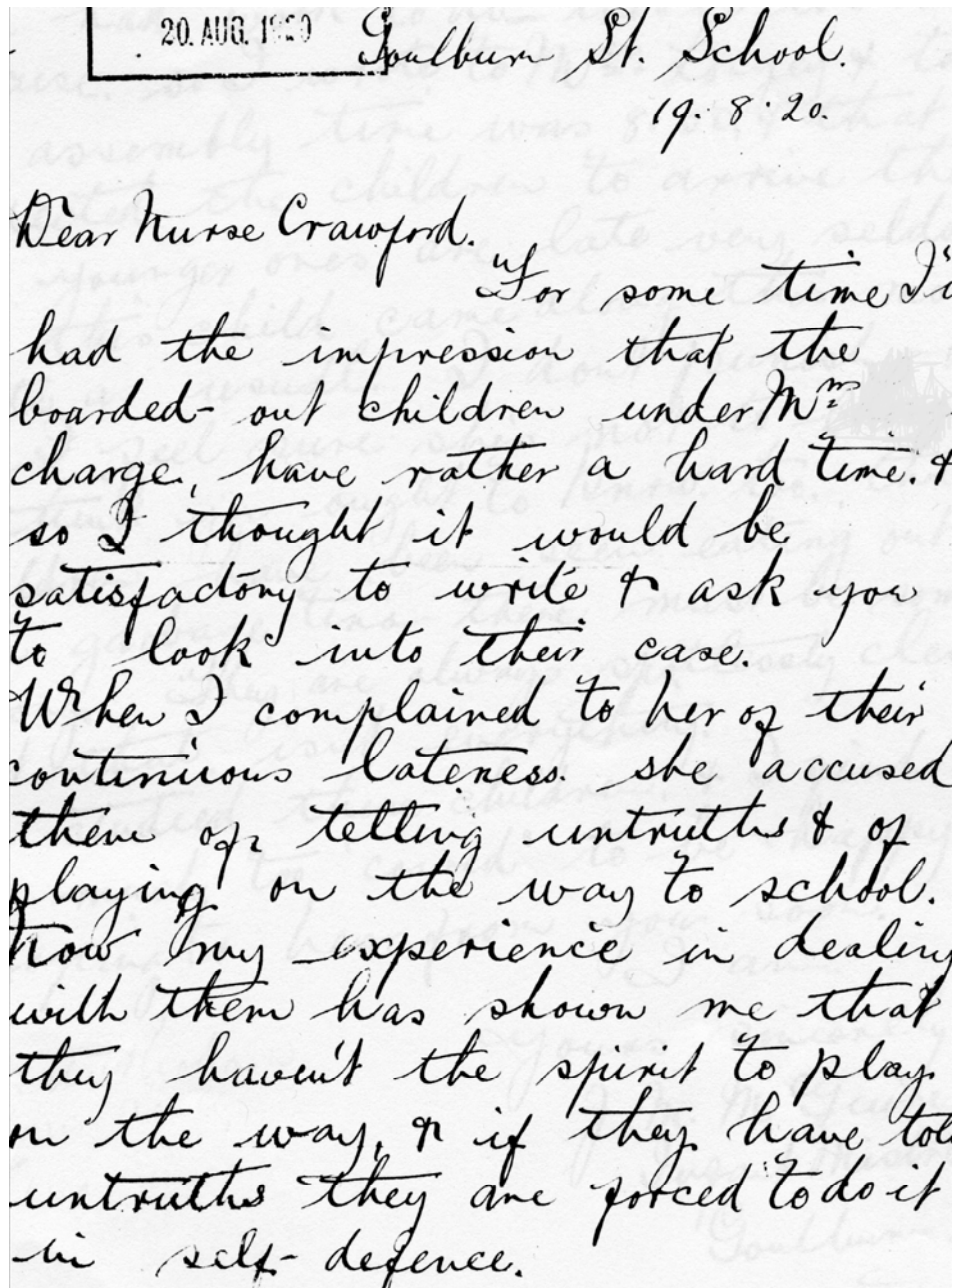 20. AUG. 1920
Goulburn St. School.
19. 8. 20.
Dear Nurse Crawford.
"For some time I'v
had the impression that the
boarded-out children under Mrs
charge, have rather a hard time. &
so I thought it would be
satisfactory to write & ask you
to look into their case.
When I complained to her of their
continuous lateness. she accused
them of telling untruths & of
playing on the way to school.
Now my experience in dealing
with them has shown me that
they haven't the spirit to play
on the way, & if they have told
untruths they are forced to do it
in self-defence.